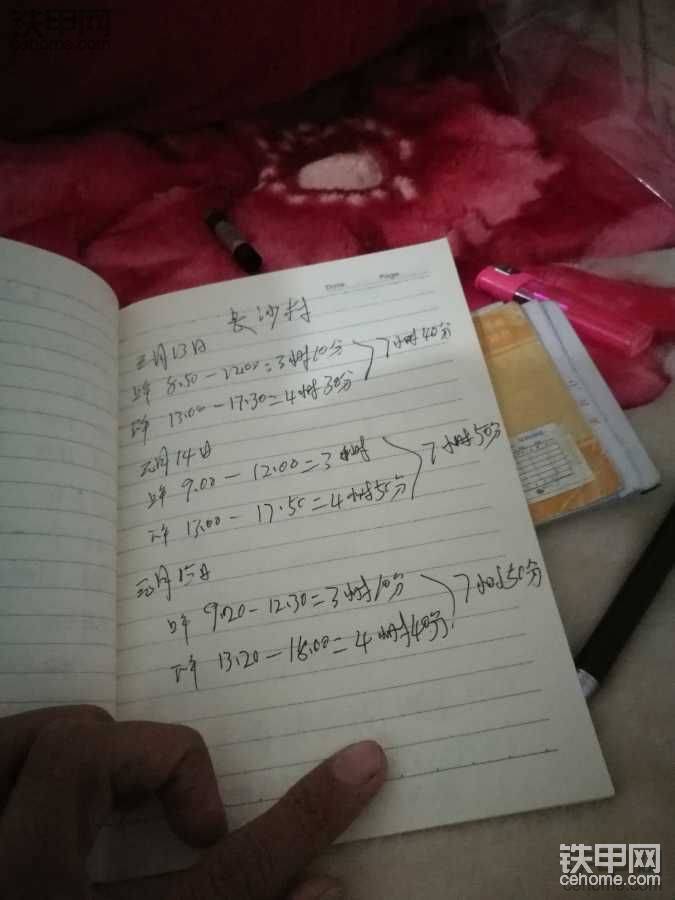 铁甲网
cehome.com
Date Page
长沙村
三月13日
上午 8.50-12.00=3小时10分
7小时40分
下午 13.00-17.30=4小时30分
三月14日
上午 9.00-12.00=3小时
7小时50分
下午 13.00-17.50=4小时50分
三月15日
上午 9.20-12.30=3小时10分
7小时50分
下午 13.20-18.00=4小时40分
铁甲网
cehome.com